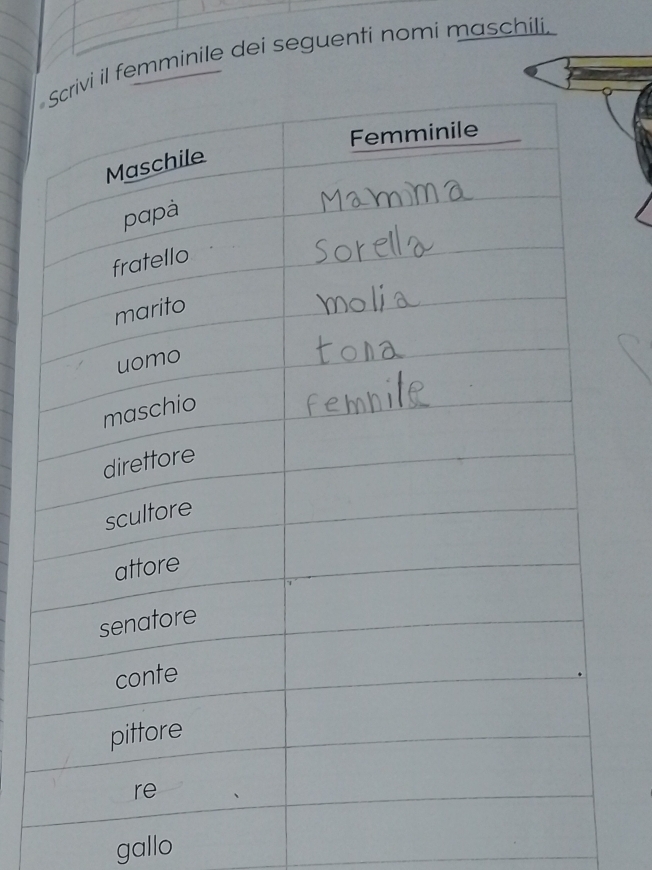 Scrivi il femminile dei seguenti nomi maschili.
Maschile Femminile
papà Mamma
fratello Sorella
marito molia
uomo tona
maschio femnile
direttore
scultore
attore
senatore
conte
pittore
re
gallo